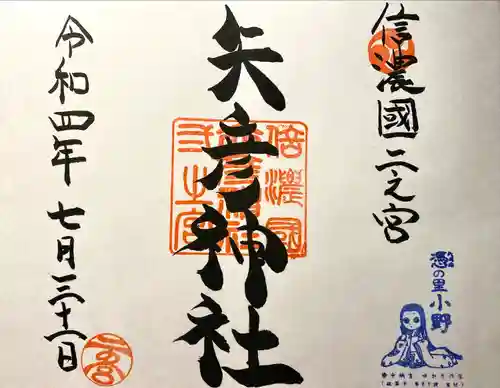 信濃國二之宮
憑の里
小野
矢彦神社
信濃國
弐之宮
令和四年七月三十一日